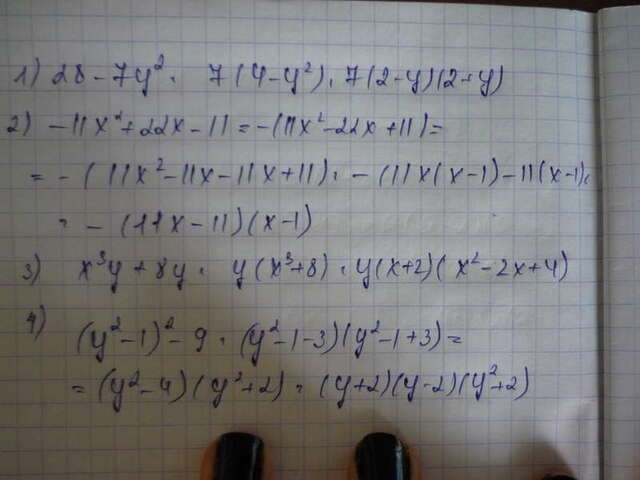 1) 28 - 7y² = 7(4 - y²) = 7(2 - y)(2 + y)
2) -11x² + 22x - 11 = -(11x² - 22x + 11) =
= -(11x² - 11x - 11x + 11) = -(11x(x - 1) - 11(x - 1) =
= -(11x - 11)(x - 1)
3) x³y + 8y = y(x³ + 8) = y(x + 2)(x² - 2x + 4)
4) (y² - 1)² - 9 = (y² - 1 - 3)(y² - 1 + 3) =
= (y² - 4)(y² + 2) = (y + 2)(y - 2)(y² + 2)